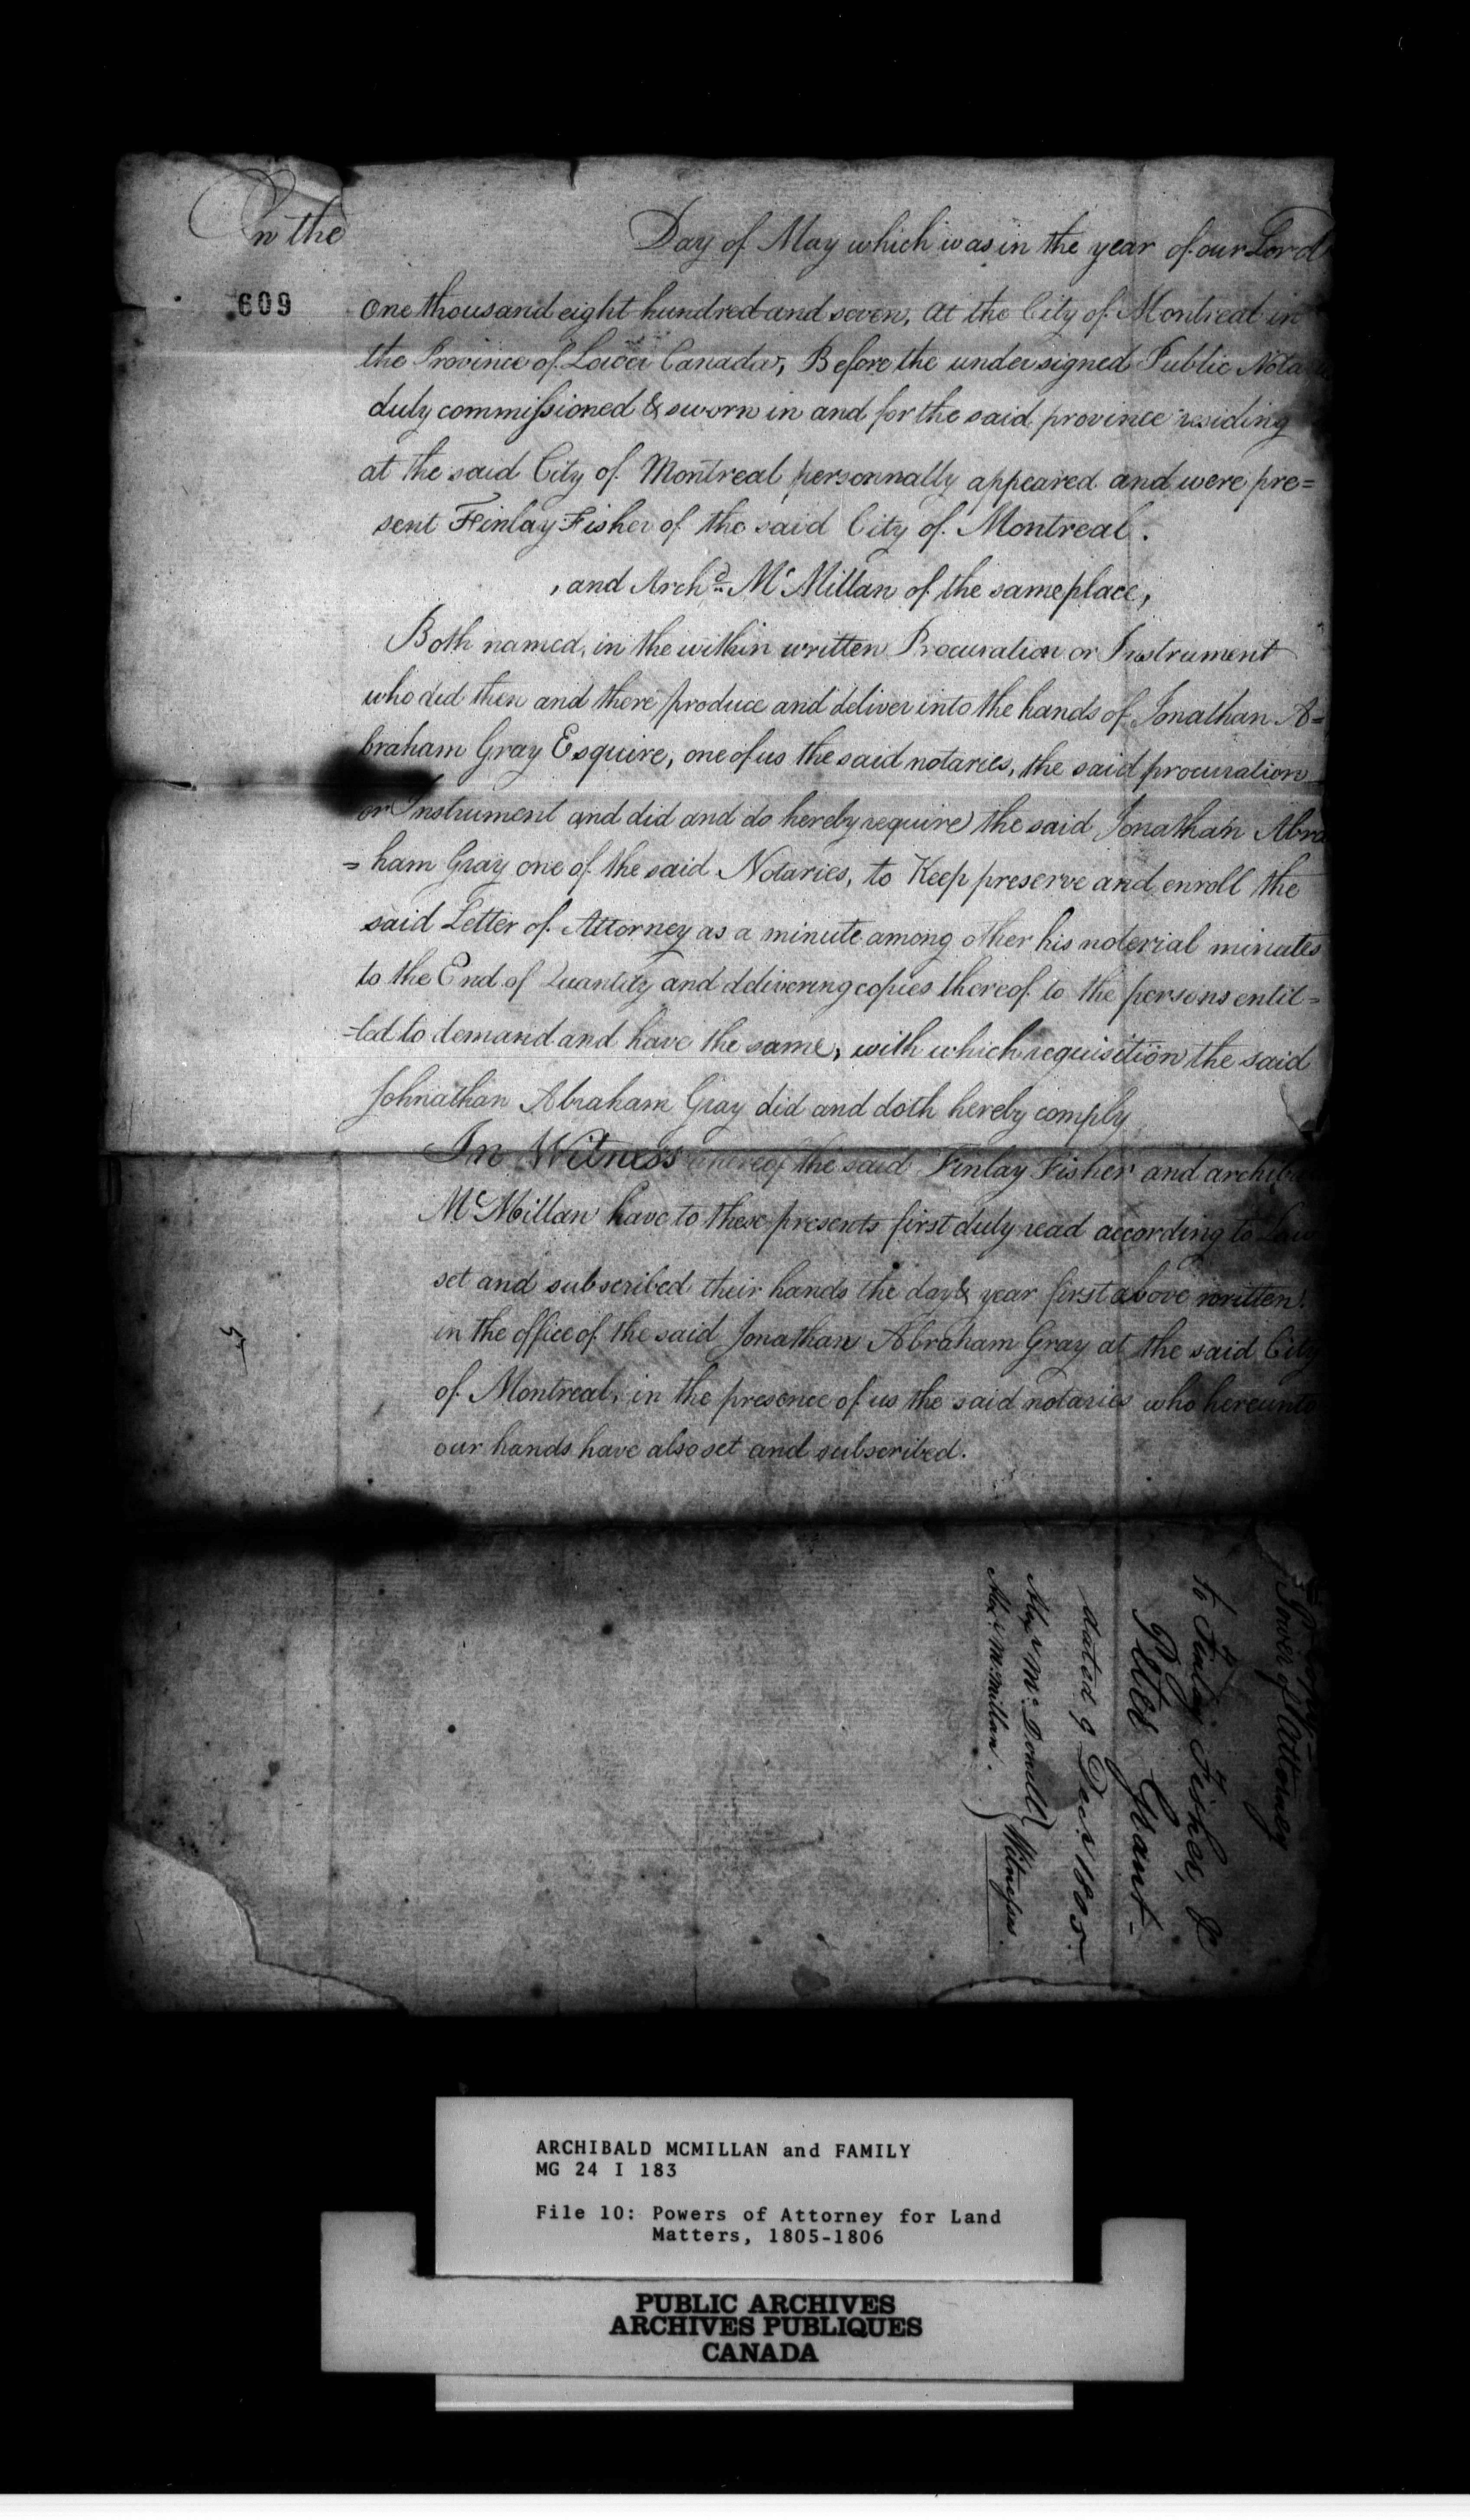 On the Day of May which was in the year of our Lord
609
One thousand eight hundred and seven, at the City of Montreal in
the Province of Lower Canada, Before the undersigned Public Notaries
duly commissioned & sworn in and for the said province residing
at the said City of Montreal personnally appeared and were pre=
sent Finlay Fisher of the said City of Montreal.
, and Archd. McMillan of the same place,
Both named, in the within written Procuration or Instrument
who did then and there produce and deliver into the hands of Jonathan A=
braham Gray Esquire, one of us the said notaries, the said procuration
or Instrument and did and do hereby require the said Jonathan Abra
=ham Gray one of the said Notaries, to Keep preserve and enroll the
said Letter of Attorney as a minute among other his noterial minutes
to the End of Quantity and delivering copies thereof to the persons entit=
-led to demand and have the same, with which requisition the said
Johnathan Abraham Gray did and doth hereby comply
In Witness whereof the said Finlay Fisher and archibald
McMillan have to these presents first duly read according to Law
set and subscribed their hands the day & year first above written.
in the office of the said Jonathan Abraham Gray at the said City
of Montreal, in the presence of us the said notaries who hereunto
our hands have also set and subscribed.
Power of Attorney
to Finlay Fisher, &
Peter Grant-
dated 9 Decr 1805-
Alexr McDonell
Alexr McMillan.
} Witnesses.
ARCHIBALD MCMILLAN and FAMILY
MG 24 I 183
File 10: Powers of Attorney for Land
Matters, 1805-1806
PUBLIC ARCHIVES
ARCHIVES PUBLIQUES
CANADA